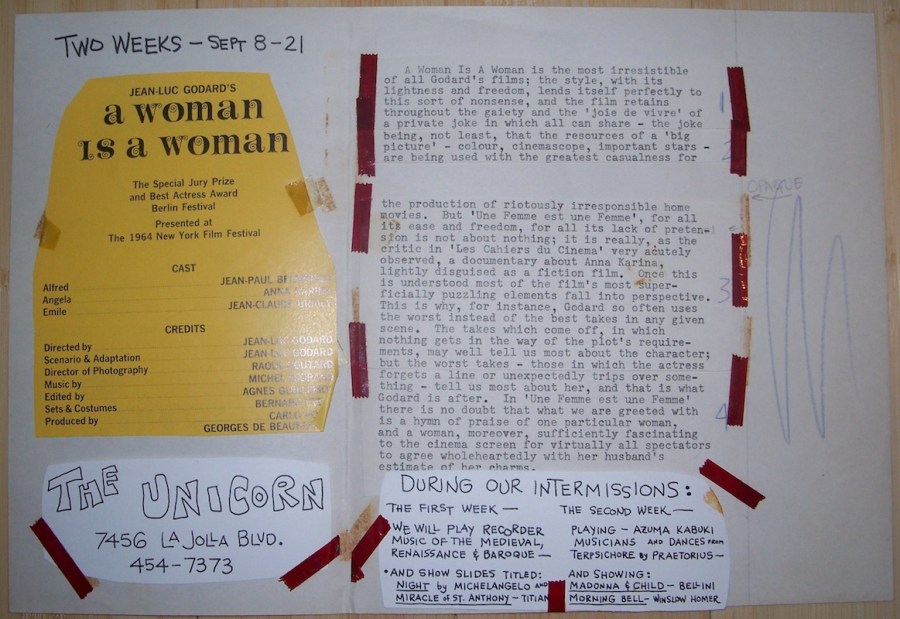 TWO WEEKS - SEPT 8-21
JEAN-LUC GODARD'S
a woman
is a woman
The Special Jury Prize
and Best Actress Award
Berlin Festival
Presented at
The 1964 New York Film Festival
CAST
Alfred JEAN-PAUL
Angela ANNA
Emile JEAN-CLAUDE
CREDITS
Directed by JEAN-LUC GODARD
Scenario & Adaptation JEAN-LUC GODARD
Director of Photography RAOUL COUTARD
Music by MICHEL
Edited by AGNES
Sets & Costumes BERNARD
Produced by CARLO
GEORGES DE
THE UNICORN
7456 LA JOLLA BLVD.
454-7373
A Woman Is A Woman is the most irresistible
of all Godard's films; the style, with its
lightness and freedom, lends itself perfectly to
this sort of nonsense, and the film retains
throughout the gaiety and the 'joie de vivre' of
a private joke in which all can share - the joke
being, not least, that the resources of a 'big
picture' - colour, cinemascope, important stars -
are being used with the greatest casualness for
the production of riotously irresponsible home
movies. But 'Une Femme est une Femme', for all
its ease and freedom, for all its lack of preten-
sion is not about nothing; it is really, as the
critic in 'Les Cahiers du Cinema' very acutely
observed, a documentary about Anna Karina,
lightly disguised as a fiction film. Once this
is understood most of the film's most super-
ficially puzzling elements fall into perspective.
This is why, for instance, Godard so often uses
the worst instead of the best takes in any given
scene. The takes which come off, in which
nothing gets in the way of the plot's require-
ments, may well tell us most about the character;
but the worst takes - those in which the actress
forgets a line or unexpectedly trips over some-
thing - tell us most about her, and that is what
Godard is after. In 'Une Femme est une Femme'
there is no doubt that what we are greeted with
is a hymn of praise of one particular woman,
and a woman, moreover, sufficiently fascinating
to the cinema screen for virtually all spectators
to agree wholeheartedly with her husband's
estimate of her charms.
1
2
3
4
OPAQUE
DURING OUR INTERMISSIONS:
THE FIRST WEEK —
WE WILL PLAY RECORDER
MUSIC OF THE MEDIEVAL,
RENAISSANCE & BAROQUE —
• AND SHOW SLIDES TITLED:
NIGHT by MICHELANGELO AND
MIRACLE of ST. ANTHONY - TITIAN
THE SECOND WEEK —
PLAYING - AZUMA KABUKI
MUSICIANS AND DANCES FROM
TERPSICHORE by PRAETORIUS —
AND SHOWING:
MADONNA & CHILD - BELLINI
MORNING BELL - WINSLOW HOMER